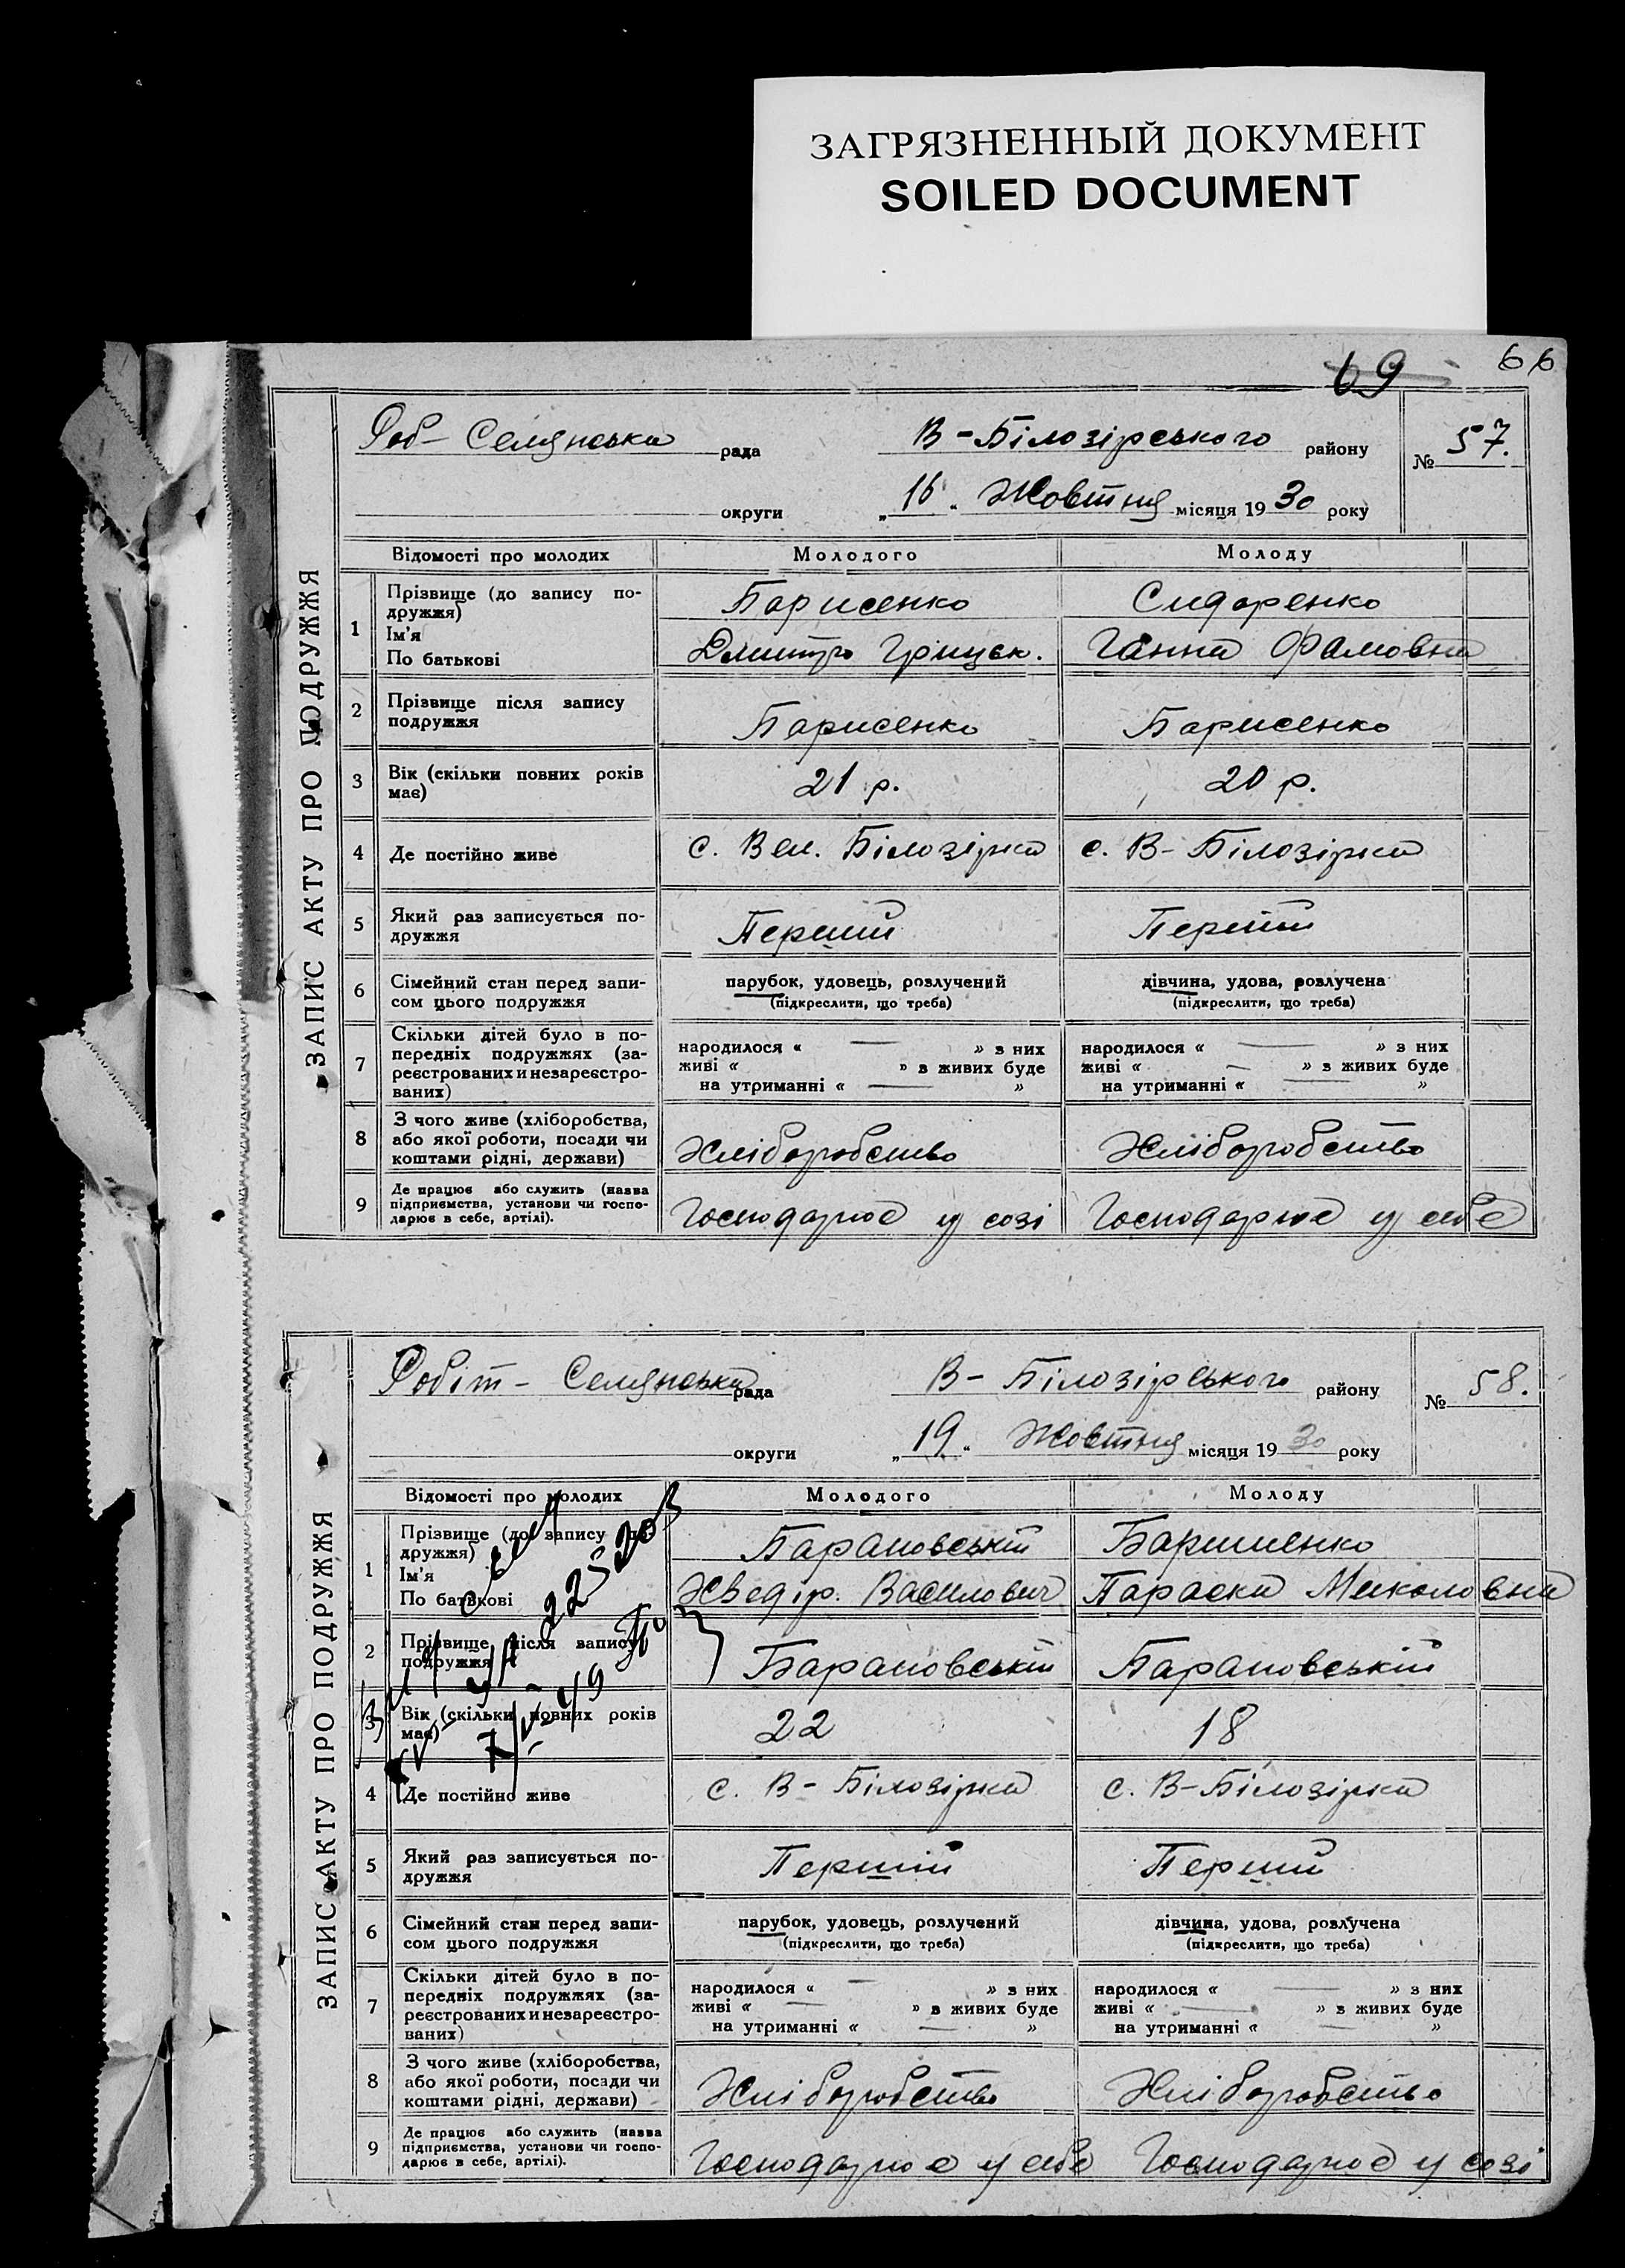 ЗАГРЯЗНЕННЫЙ ДОКУМЕНТ
SOILED DOCUMENT
69 66
ЗАПИС АКТУ ПРО ПОДРУЖЖЯ
Роб- Селянська рада В-Білозірського району № 57.
округи „16“ Жовтня місяця 1930 року
Відомості про молодих Молодого Молоду
1 Прізвище (до запису по-
дружжя) Борисенко Сидоренко
Ім'я
По батькові Дмитро Грицьк. Ганна Фамовна
2 Прізвище після запису
подружжя Барисенко Барисенко
3 Вік (скільки повних років
має) 21 р. 20 р.
4 Де постійно живе с. Вел. Білозірка с. В- Білозірка
5 Який раз записується по-
дружжя Перший Перший
6 Сімейний стан перед запи-
сом цього подружжя парубок, удовець, розлучений дівчина, удова, розлучена
(підкреслити, що треба) (підкреслити, що треба)
7 Скільки дітей було в по-
передніх подружжях (за-
реєстрованих и незареєстро-
ваних)
народилося « — » з них народилося « — » з них
живі « » в живих буде живі « — » в живих буде
на утриманні « — » на утриманні « — »
8 З чого живе (хліборобства,
або якої роботи, посади чи
коштами рідні, держави) Хліборобство Хліборобство
9 Де працює або служить (назва
підприємства, установи чи госпо-
дарює в себе, артілі). Господарює у созі Господарює у себе
ЗАПИС АКТУ ПРО ПОДРУЖЖЯ
Робіт- Селянська рада В- Білозірського району № 58.
округи „19“ Жовтня місяця 1930 року
Відомості про молодих Молодого Молоду
1 Прізвище (до запису по-
дружжя) Барановській Баришенко
Ім'я
По батькові Хведір. Василович Параска Миколовна
2 Прізвище після запису
подружжя Барановській Барановській
3 Вік (скільки повних років
має) 22 18
4 Де постійно живе с. В- Білозірка с. В-Білозірка
5 Який раз записується по-
дружжя Першій Перший
6 Сімейний стан перед запи-
сом цього подружжя парубок, удовець, розлучений дівчина, удова, розлучена
(підкреслити, що треба) (підкреслити, що треба)
7 Скільки дітей було в по-
передніх подружжях (за-
реєстрованих и незареєстро-
ваних)
народилося « — » з них народилося « — » з них
живі « — » в живих буде живі « — » в живих буде
на утриманні « — » на утриманні « — »
8 З чого живе (хліборобства,
або якої роботи, посади чи
коштами рідні, держави) Хліборобство Хліборобство
9 Де працює або служить (назва
підприємства, установи чи госпо-
дарює в себе, артілі). Господарює у себе Господарює у созі